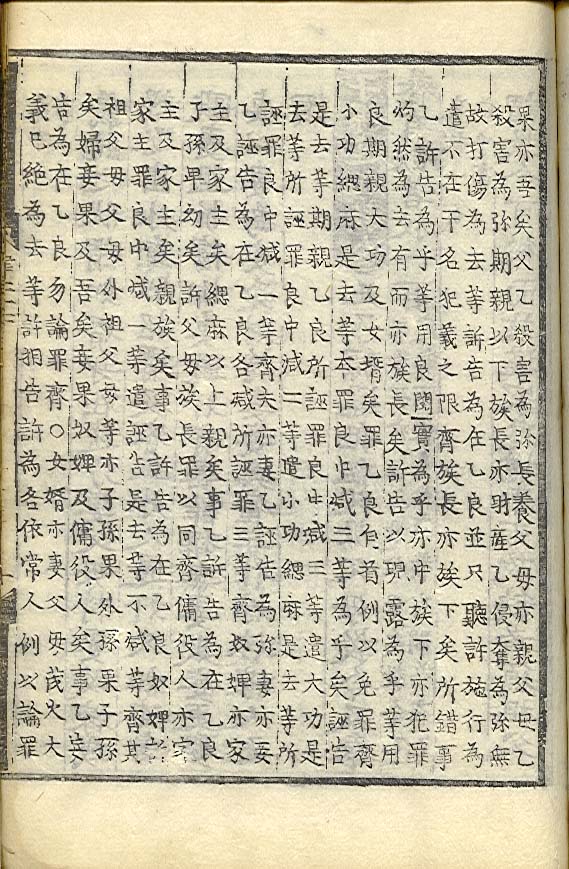 果亦吾矣父乙殺害為旀長養父母亦親父母乙
殺害為旀期親以下族長亦財産乙侵奪為旀無
故打傷為去等訴告為在乙良並只聽許施行為
遣不在干名犯義之限齊族長亦族下矣所錯事
乙訴告為乎等用良閱實為乎亦中族下亦犯罪
灼然為去有而亦族長矣訴告以現露為乎等用
良期親大功及女壻矣罪乙良自首例以免罪齊
小功緦麻是去等本罪良中減三等為乎矣誣告
是去等期親乙良所誣罪良中減三等遣大功是
去等所誣罪良中減二等遣小功緦麻是去等所
誣罪良中減一等齊夫亦妻乙誣告為旀妻亦妾
乙誣告為在乙良各減所誣罪三等齊奴婢亦家
主及家主矣緦麻以上親矣事乙訴告為在乙良
子孫卑幼矣訴父母族長罪以同齊傭役人亦家
主及家主矣親族矣事乙訴告為在乙良奴婢訴
家主罪良中減一等遣誣告是去等不減等齊其
祖父母父母外祖父母等亦子孫果外孫果子孫
矣婦妾果及吾矣妾果奴婢及傭役人矣事乙妄
告為在乙良勿論罪齊○女婿亦妻父母茂火大
義已絶為去等許相告訴為各依常人例以論罪